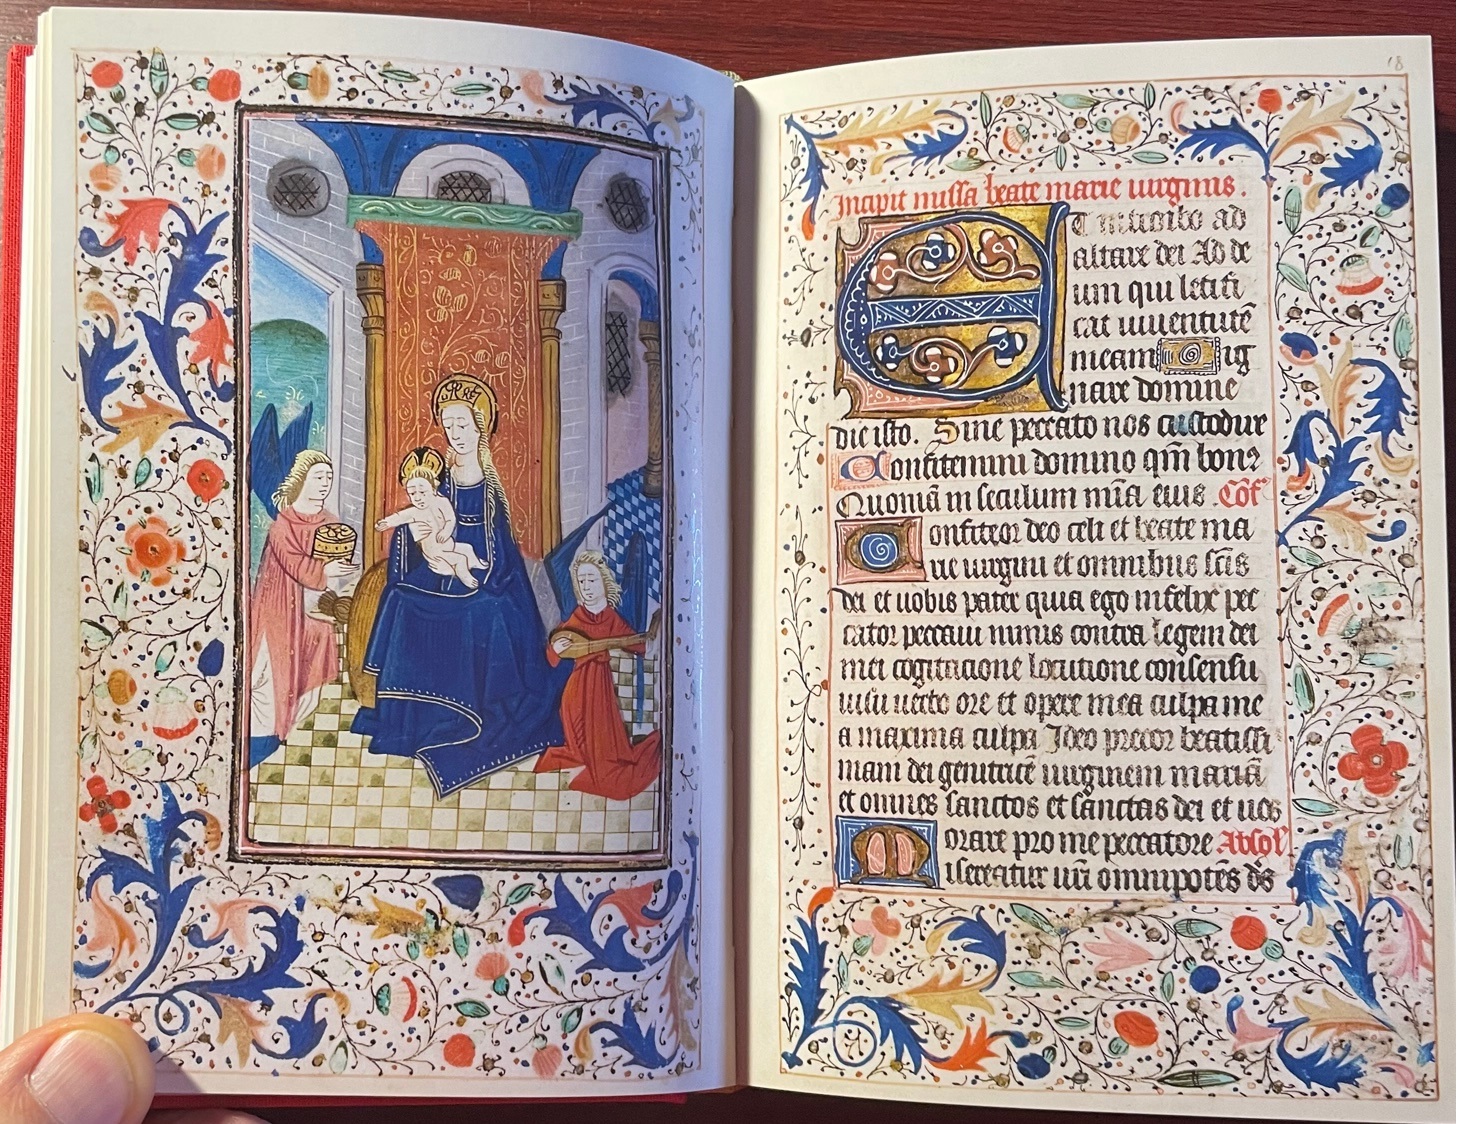 18
Incipit missa beate marie uirginis.
Et introibo ad
altare dei Ad de
um qui letifi
cat iuuentutē
meam Dig
nare domine
die isto. Sine peccato nos custodire
Confitemini domino qm̄ bonꝰ
Quoniā in seculum mīa eius Cōf
Confiteor deo celi et beate ma
rie uirgini et omnibus sc̄is
dei et uobis pater quia ego infelix pec
cator peccaui nimis contra legem dei
mei cogitacione locutione consensu
uisu uerbo ore et opere mea culpa me
a maxima culpa Ideo precor beatissi
mam dei genitricē uirginem mariā
et omnes sanctos et sanctas dei et uos
orare pro me peccatore Absol
Misereatur uri omnipotēs ds̄